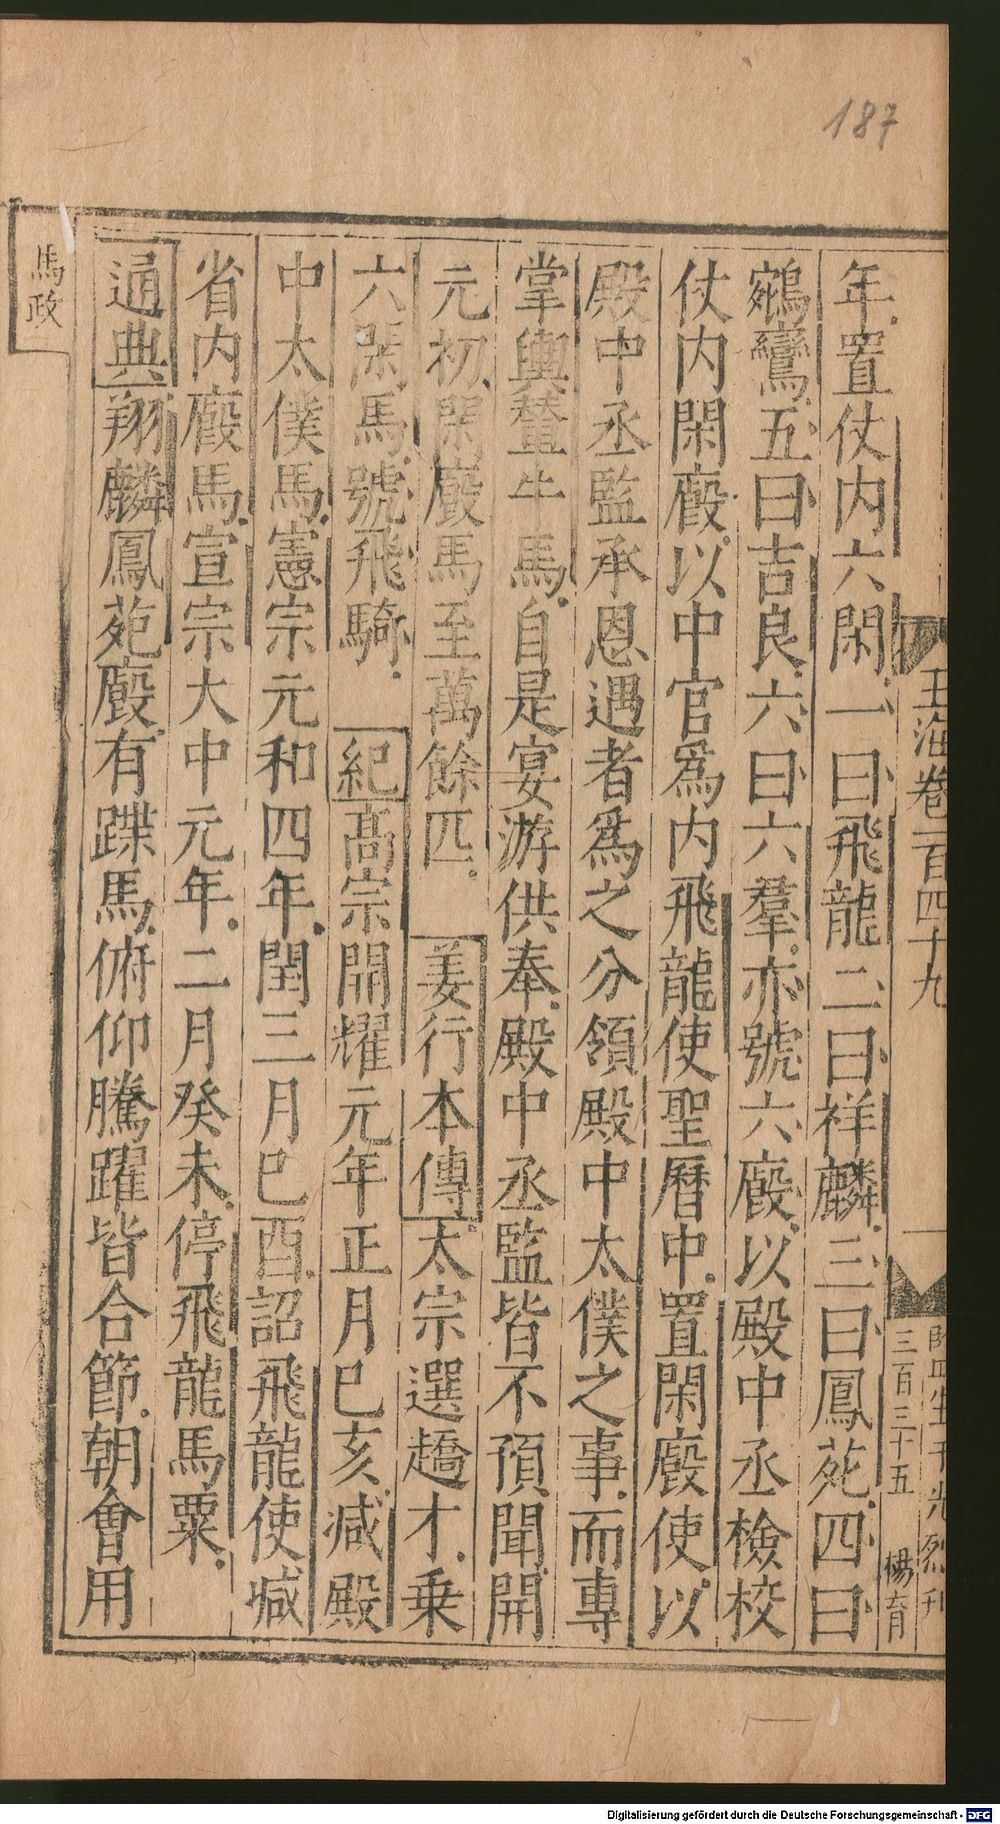 187
玉海卷一百四十九
三百三十五
楊育
年置仗内六閑一曰飛龍二曰祥麟三曰鳳苑四曰
鵷鸞五曰吉良六曰六羣亦號六廄以殿中丞檢校
仗内閑廄以中官爲内飛龍使聖曆中置閑廄使以
殿中丞監承恩遇者爲之分領殿中太僕之事而專
掌輿輦牛馬自是宴游供奉殿中丞監皆不預聞開
元初閑廄馬至萬餘匹姜行本傳太宗選趫才乗
六閑馬號飛騎紀高宗開耀元年正月巳亥減殿
中太僕馬憲宗元和四年閏三月巳酉詔飛龍使減
省内廄馬宣宗大中元年二月癸未停飛龍馬粟
通典翔麟鳳苑廄有蹀馬俯仰騰躍皆合節朝會用
馬政
Digitalisierung gefördert durch die Deutsche Forschungsgemeinschaft - DFG